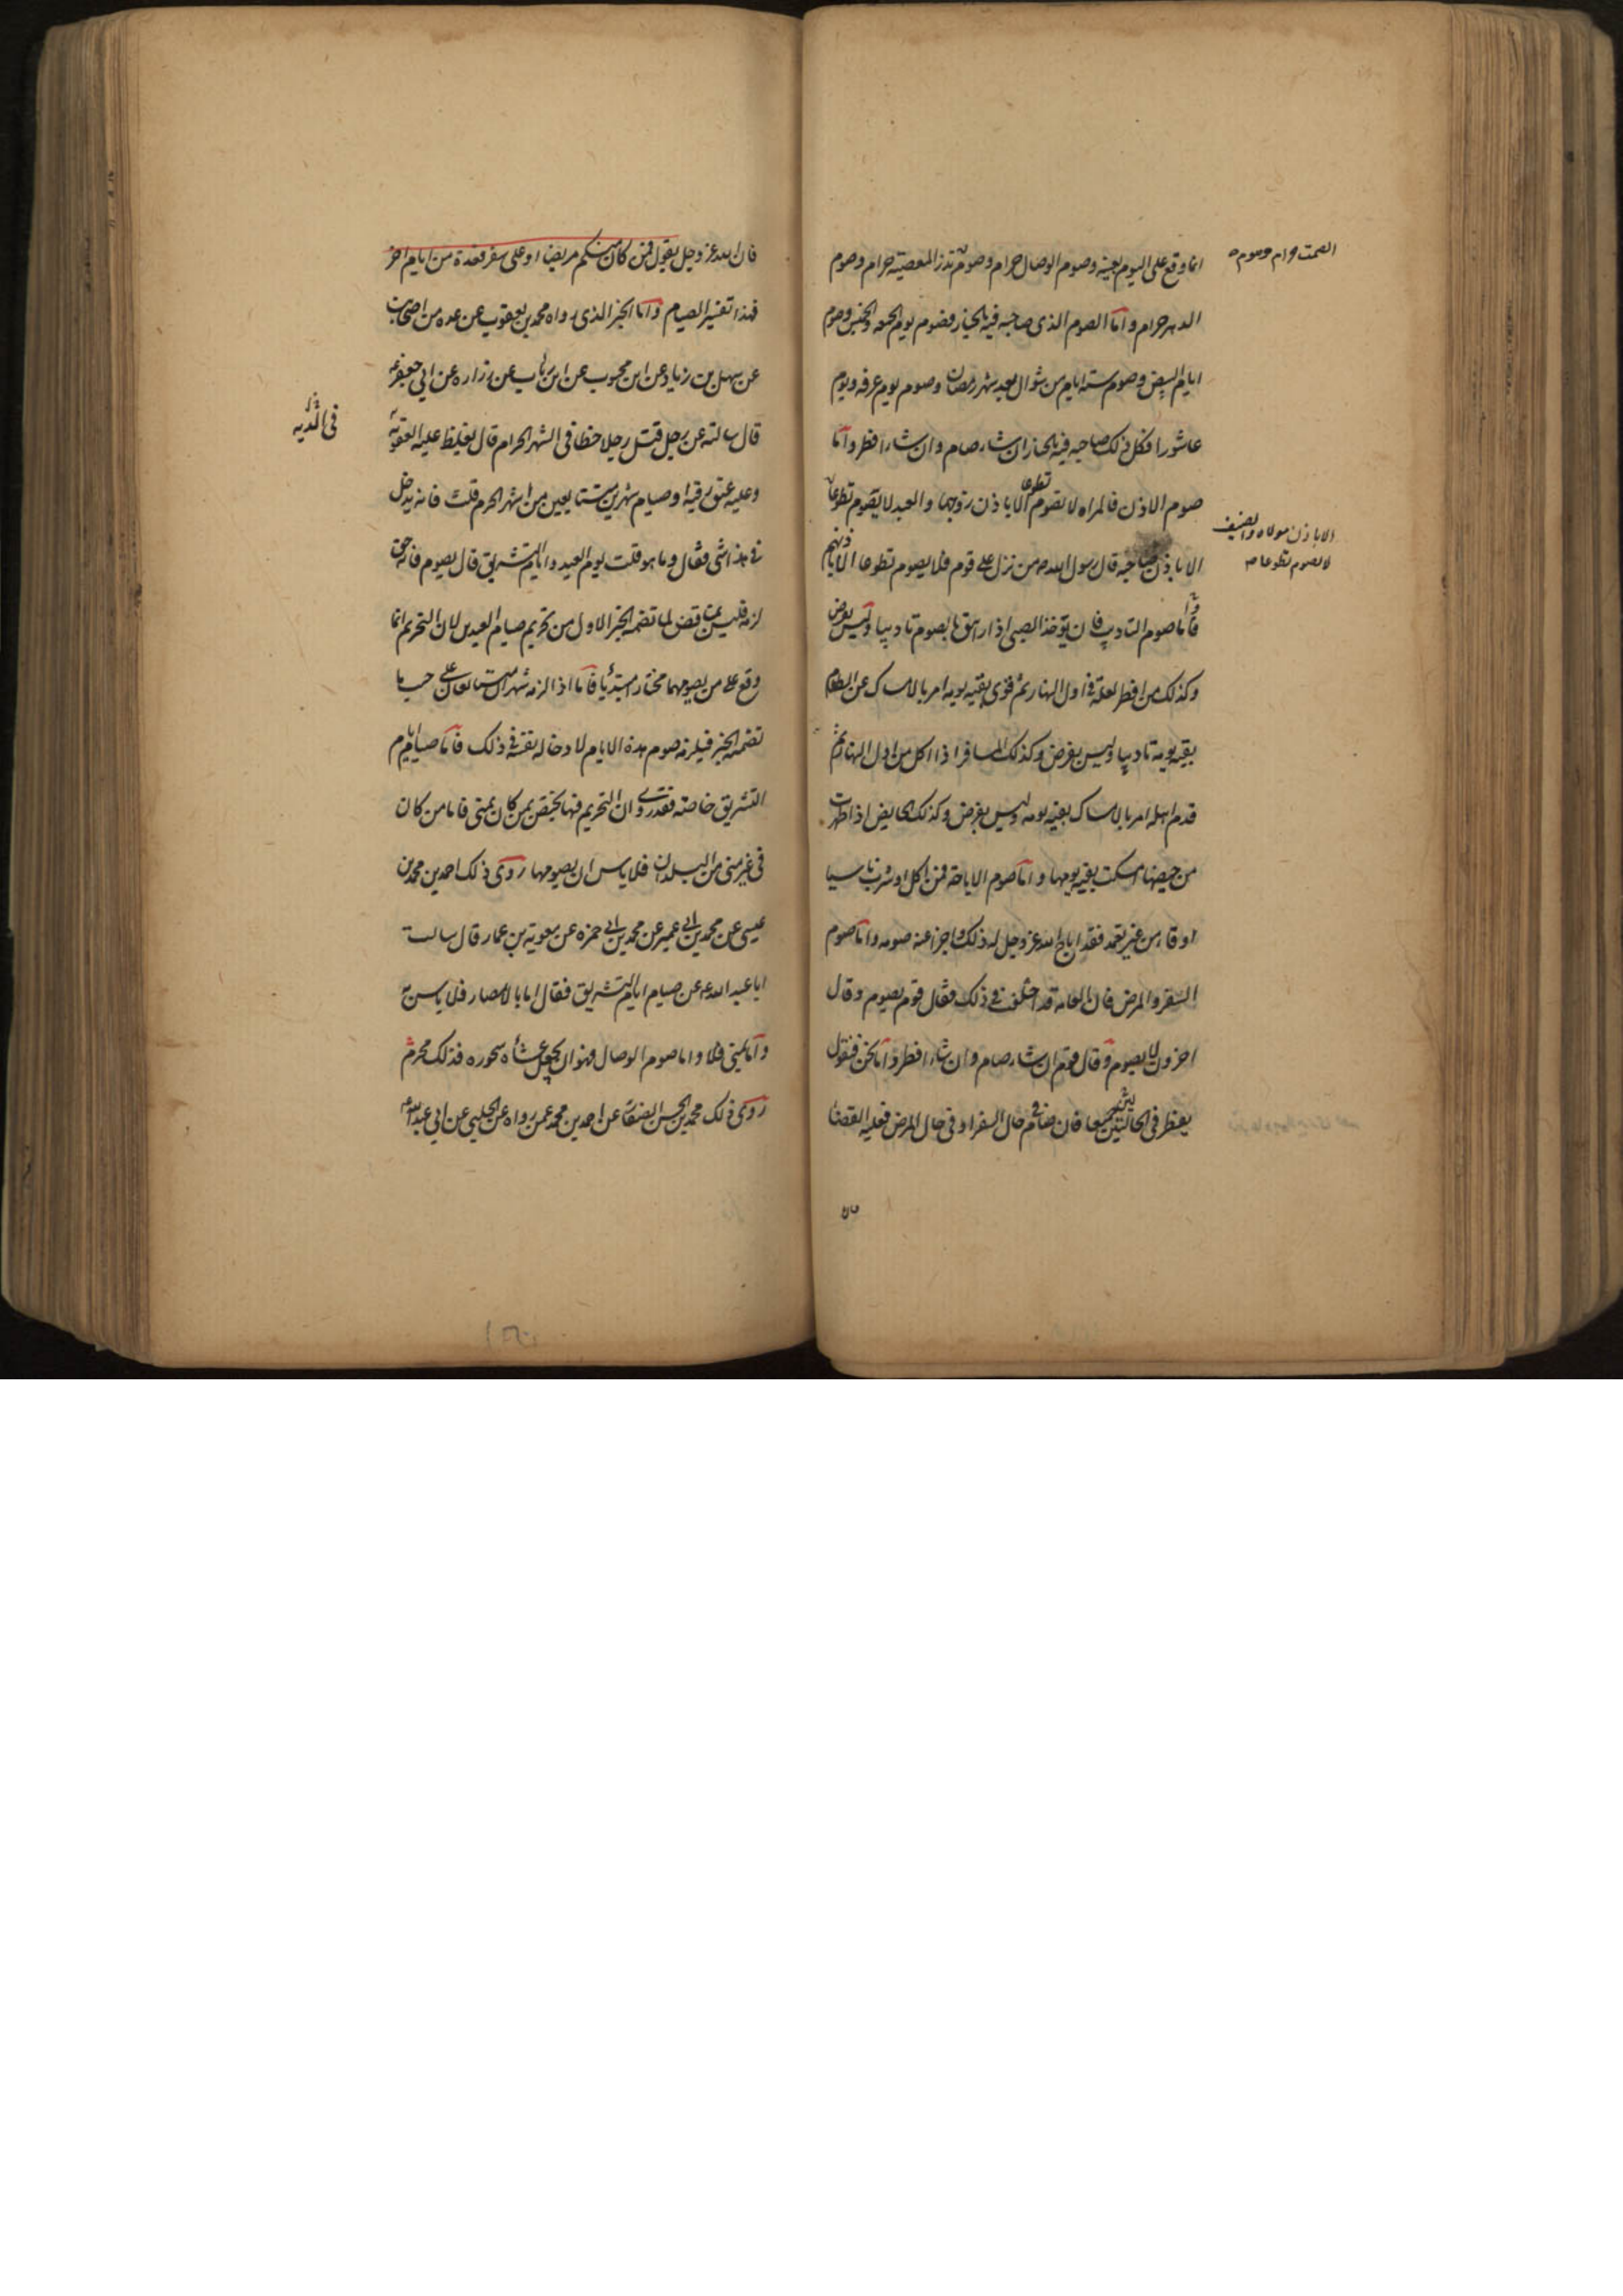 انما وقع على اليوم بعينه وصوم الوصال حرام وصوم نذر المعصية حرام وصوم
الصمت حرام وصوم
الدهر حرام واما الصوم الذي صاحبه فيه بالخيار فصوم يوم الجمعه والخميس وصوم
ايام البيض وصوم ستة ايام من شوال بعد شهر رمضان وصوم يوم عرفه ويوم
عاشورا فكل ذلك صاحبه فيه بالخيار ان شاء صام وان شاء افطر واما
صوم الاذن فالمراه لا تصوم تطوعا الا باذن زوجها والعبد لا يصوم تطوعا
الا باذن مولاه والضيف
لا يصوم تطوعا
الا باذن صاحبه قال رسول الله ص من نزل على قوم فلا يصوم تطوعا الا باذنهم
واما صوم التاديب فان يؤخذ الصبي اذا راهق بالصوم تاديبا وليس بفرض
وكذلك من افطر لعلة في اول النهار ثم قوي بقيه يومه امر بالامساك عن الطعام
بقيه يومه تاديبا وليس بفرض وكذلك المسافر اذا اكل من اول النهار ثم
قدم اهله امر بالامساك بقيه يومه وليس بفرض وكذلك الحايض اذا طهرت
من حيضها امسكت بقيه يومها واما صوم الاباحة فمن اكل او شرب ناسيا
او قاء من غير تعمد فقد اباح الله عز وجل له ذلك واجزا عنه صومه واما صوم
السفر والمرض فان العامة قد اختلف في ذلك فقال قوم يصوم وقال
اخرون لا يصوم وقال قوم ان شاء صام وان شاء افطر واما نحن فنقول
يفطر في الحالتين جميعا فان صام في حال السفر او في حال المرض فعليه القضا
فان الله عز وجل يقول فمن كان منكم مريضا او على سفر فعدة من ايام اخر
فهذا تفسير الصيام واما الخبر الذي رواه محمد بن يعقوب عن عده من اصحابنا
عن سهل بن زياد عن ابن محبوب عن ابن رئاب عن زراره عن ابي جعفر ع
قال سالته عن رجل قتل رجلا خطا في الشهر الحرام قال يغلظ عليه العقوبة
في الديه
وعليه عتق رقبه او صيام شهرين متتابعين من اشهر الحرم قلت فانه يدخل
في هذا شي فقال وما هو قلت يوم العيد وايام التشريق قال يصوم فانه حق
لزمه فليس يناقض لما تضمنه الخبر الاول من تحريم صيام العيدين لان التحريم انما
وقع على من يصومهما مختارا مبتديا فاما اذا لزمه شهران متتابعان على حسب ما
تضمنه الخبر فيلزمه صوم هذه الايام لادخاله نفسه في ذلك فاما صيام ايام
التشريق خاصه فقد روي ان التحريم فيها يختص بمن كان بمنى فاما من كان
في غير منى من البلدان فلا باس ان يصومها روى ذلك احمد بن محمد بن
عيسى عن محمد بن ابي عمير عن محمد بن ابي حمزه عن معوية بن عمار قال سالت
ابا عبد الله ع عن صيام ايام التشريق فقال اما بالامصار فلا باس به
واما بمنى فلا واما صوم الوصال فهو ان يجعل عشاه سحوره فذلك محرم
روى ذلك محمد بن الحسن الصفار عن احمد بن محمد عمن رواه عن الحلبي عن ابي عبد الله ع